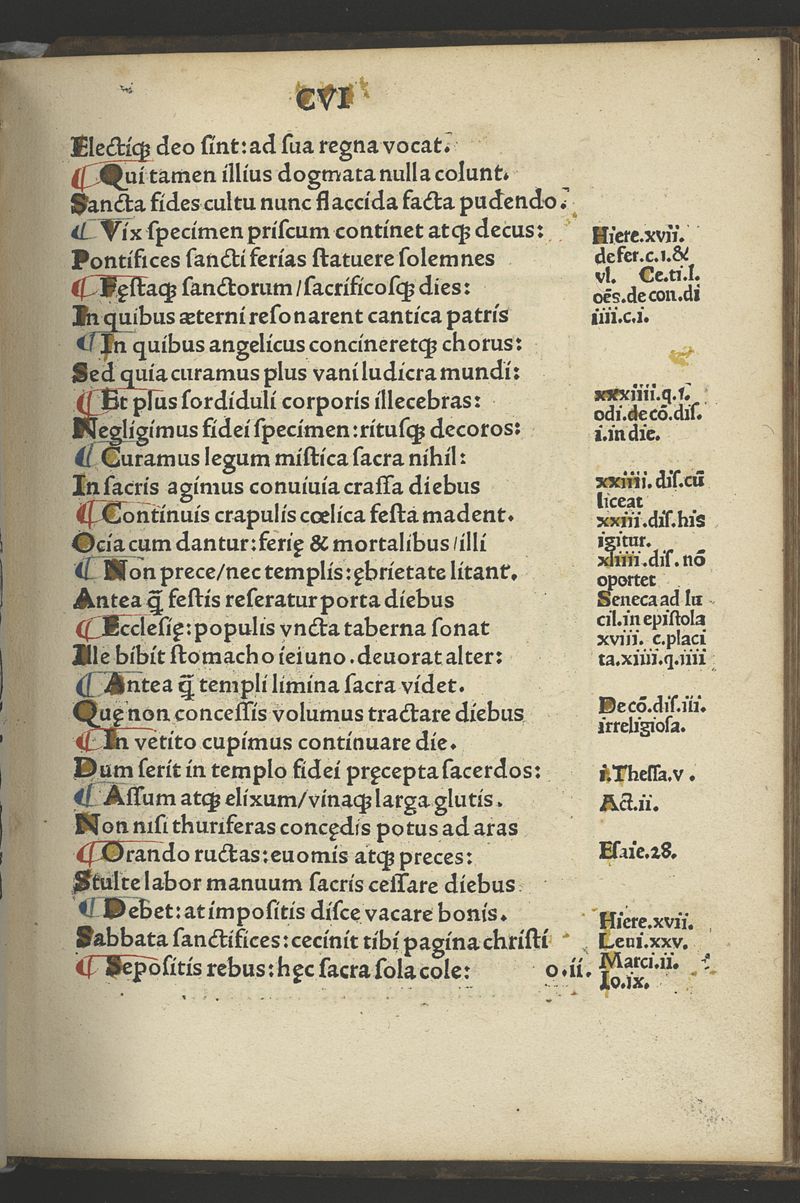 CVI
Electiqꝫ deo ſint: ad ſua regna vocat.
¶ Qui tamen illius dogmata nulla colunt.
Sancta fides cultu nunc flaccida facta pudendo.
¶ Vix ſpecimen priſcum continet atqꝫ decus:
Pontifices ſancti ferias ſtatuere ſolemnes
¶ Fęſtaqꝫ ſanctorum/ſacrificoſqꝫ dies:
In quibus æterni reſonarent cantica patris
¶ In quibus angelicus concineretqꝫ chorus:
Sed quia curamus plus vani ludicra mundi:
¶ Et plus ſordiduli corporis illecebras:
Negligimus fidei ſpecimen: rituſqꝫ decoros:
¶ Curamus legum miſtica ſacra nihil:
In ſacris agimus conuiuia craſſa diebus
¶ Continuis crapulis cœlica feſta madent.
Ocia cum dantur: ferię & mortalibus/illi
¶ Non prece/nec templis: ębrietate litant.
Antea q̃ feſtis reſeratur porta diebus
¶ Eccleſię: populis vncta taberna ſonat
Ille bibit ſtomacho ieiuno. deuorat alter:
¶ Antea q̃ templi limina ſacra videt.
Quę non conceſſis volumus tractare diebus
¶ In vetito cupimus continuare die.
Dum ſerit in templo fidei pręcepta ſacerdos:
¶ Aſſum atqꝫ elixum/vinaqꝫ larga glutis.
Non niſi thuriferas concędis potus ad aras
¶ Orando ructas: euomis atqꝫ preces:
Stulte labor manuum ſacris ceſſare diebus
¶ Debet: at impoſitis diſce vacare bonis.
Sabbata ſanctifices: cecinit tibi pagina chriſti
¶ Sepoſitis rebus: hęc ſacra ſola cole:
o.ii.
Hiere.xvii.
de fer.c.1.&
vl. Ce.ti.l.
oēs.de con.di
iiii.c.i.
xxxiiii.q.1.
odi.de cō.diſ.
i.in die.
xxiiii.diſ.cū
liceat
xxiii.diſ.his
igitur.
xliiii.diſ.nō
oportet
Seneca ad lu
cil.in epiſtola
xviii. c.placi
ta.xiiii.q.iiii
De cō.diſ.iii.
irreligioſa.
i.Theſſa.v.
Act.ii.
Eſaie.28.
Hiere.xvii.
Leui.xxv.
Marci.ii.
Io.ix.